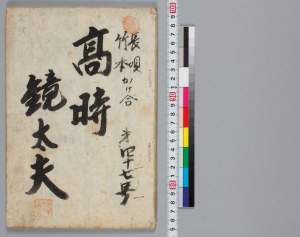 長唄
竹本 かけ合
第四十七号
高時
鏡太夫